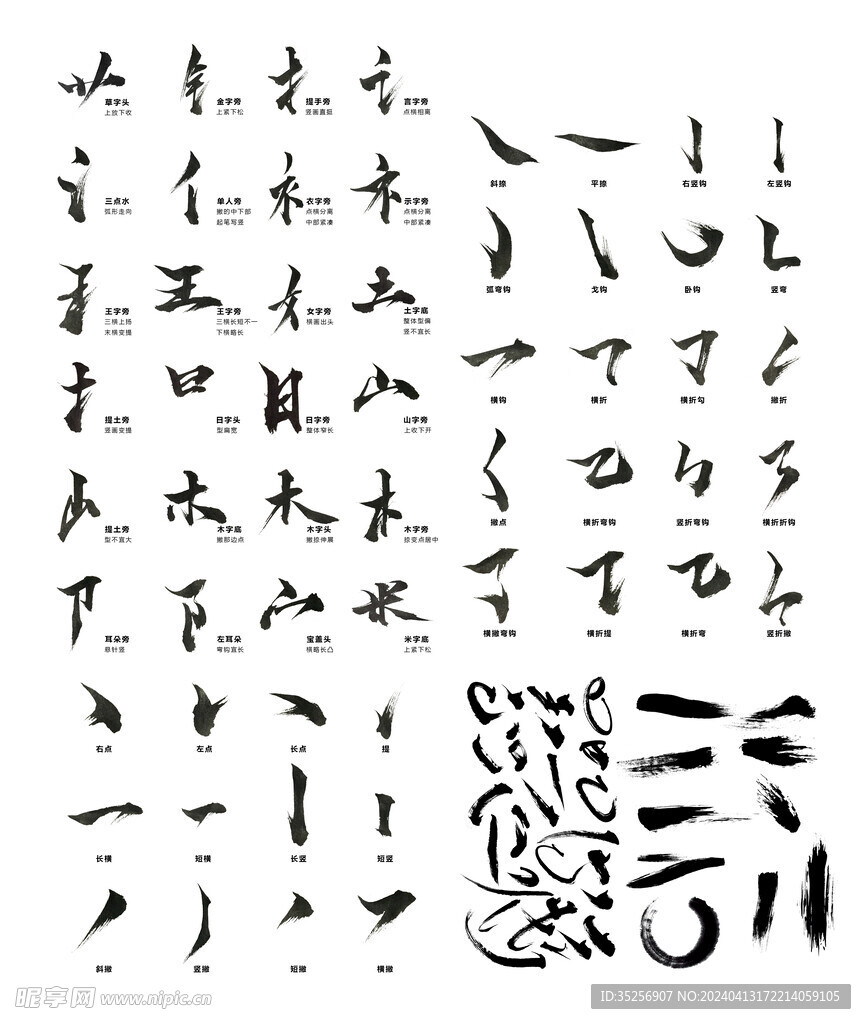 草字头
上放下收
金字旁
上紧下松
提手旁
竖画直挺
言字旁
点横相离
三点水
弧形走向
单人旁
撇的中下部
起笔写竖
衣字旁
点横分离
中部紧凑
示字旁
点横分离
中部紧凑
王字旁
三横上扬
末横变提
王字旁
三横长短不一
下横略长
女字旁
横画出头
土字底
整体型偏
竖不宜长
提土旁
竖画变提
日字头
型扁宽
日字旁
整体窄长
山字旁
上收下开
提土旁
型不宜大
木字底
撇那边点
木字头
撇捺伸展
木字旁
捺变点居中
耳朵旁
悬针竖
左耳朵
弯钩宜长
宝盖头
横略长凸
米字底
上紧下松
右点
左点
长点
提
长横
短横
长竖
短竖
斜撇
竖撇
短撇
横撇
斜捺
平捺
右竖钩
左竖钩
弧弯钩
戈钩
卧钩
竖弯
横钩
横折
横折勾
撇折
撇点
横折弯钩
竖折弯钩
横折折钩
横撇弯钩
横折提
横折弯
竖折撇
昵享网 www.nipic.cn
ID:35256907 NO:20240413172214059105